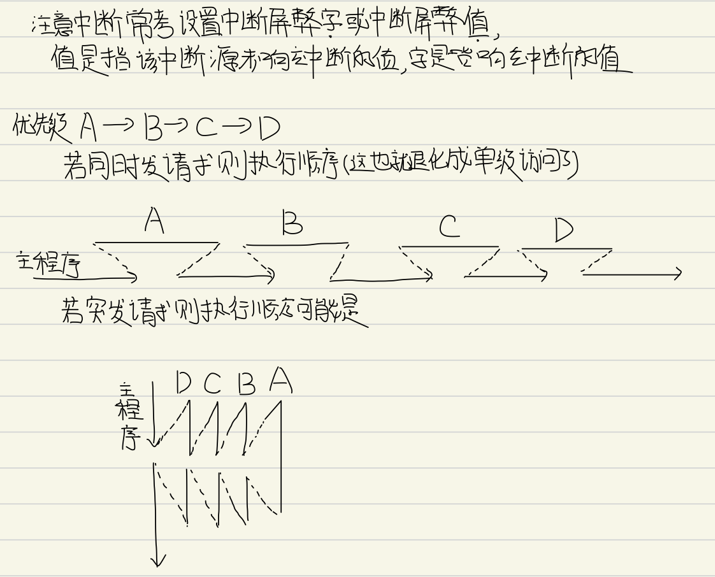 注意中断常考设置中断屏蔽字或中断屏蔽值,
值是指该中断源未响应中断的位,字是啥响应中断的值
优先级 A→B→C→D
若同时发请求则执行顺序(这也就退化成单级访问了)
A B C D
主程序
若突发请求则执行顺序可能是
D C B A
主程序